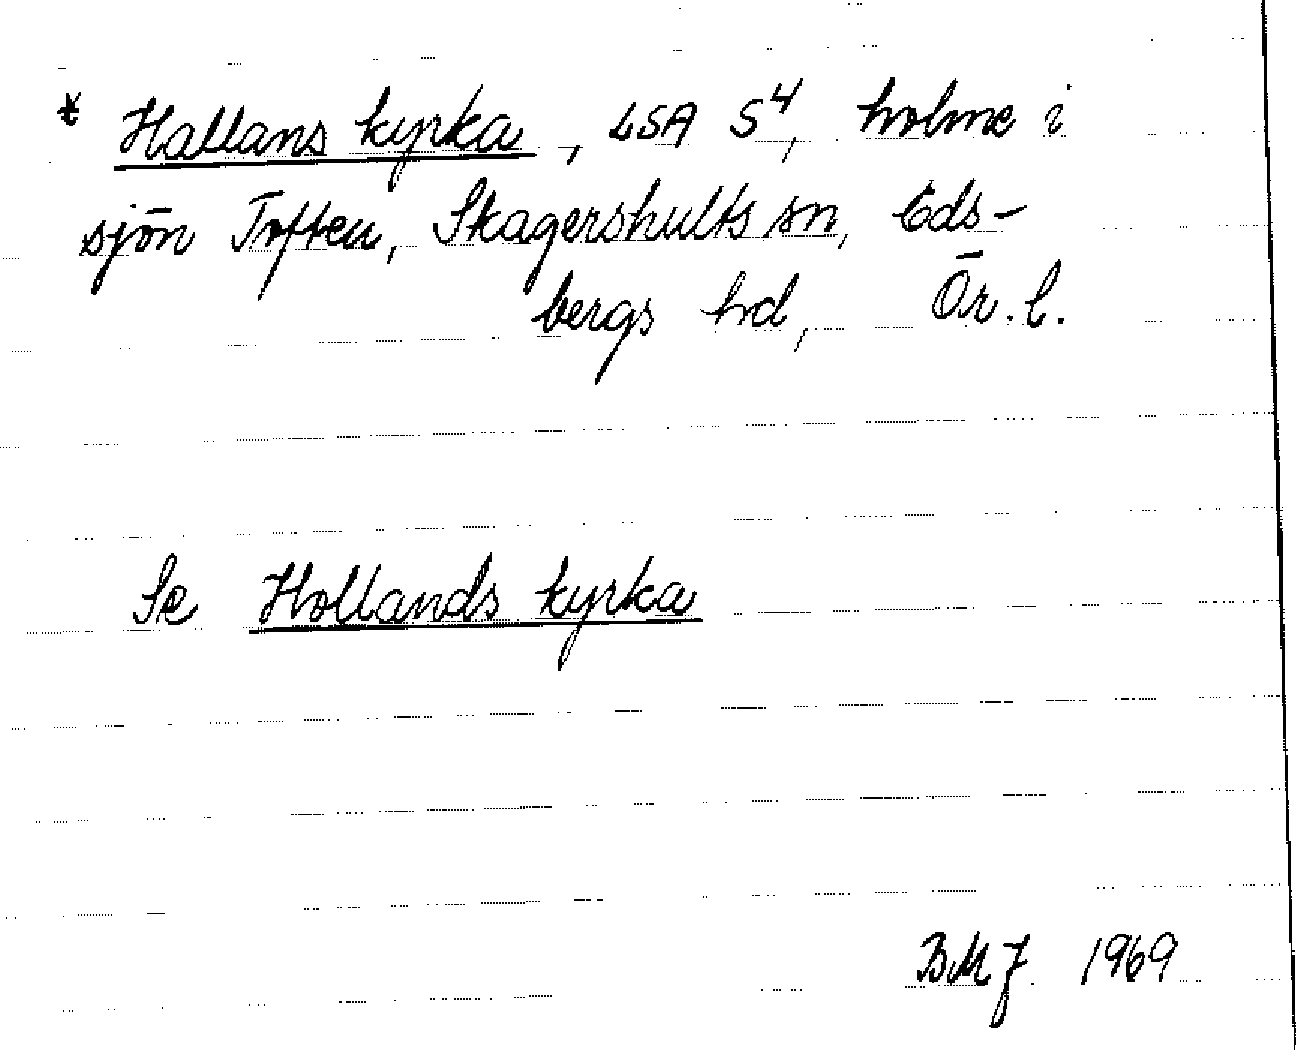 * Hallans kyrka, LSA S⁴, holme i
sjön Toften, Skagershults sn, Eds-
bergs hd, Ör. l.
Se Hollands kyrka
BMJ 1969